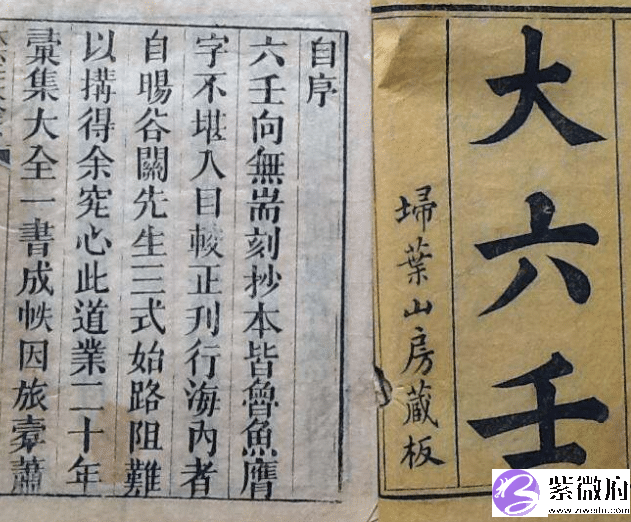 大六壬
埽葉山房藏板
自序
六壬向無耑刻抄本皆魯魚膺
字不堪入目較正刊行海內者
自暘谷關先生三式始路阻難
以搆得余究心此道業二十年
彚集大全一書成帙因旅橐蕭
紫微府
www.ziweifu.com